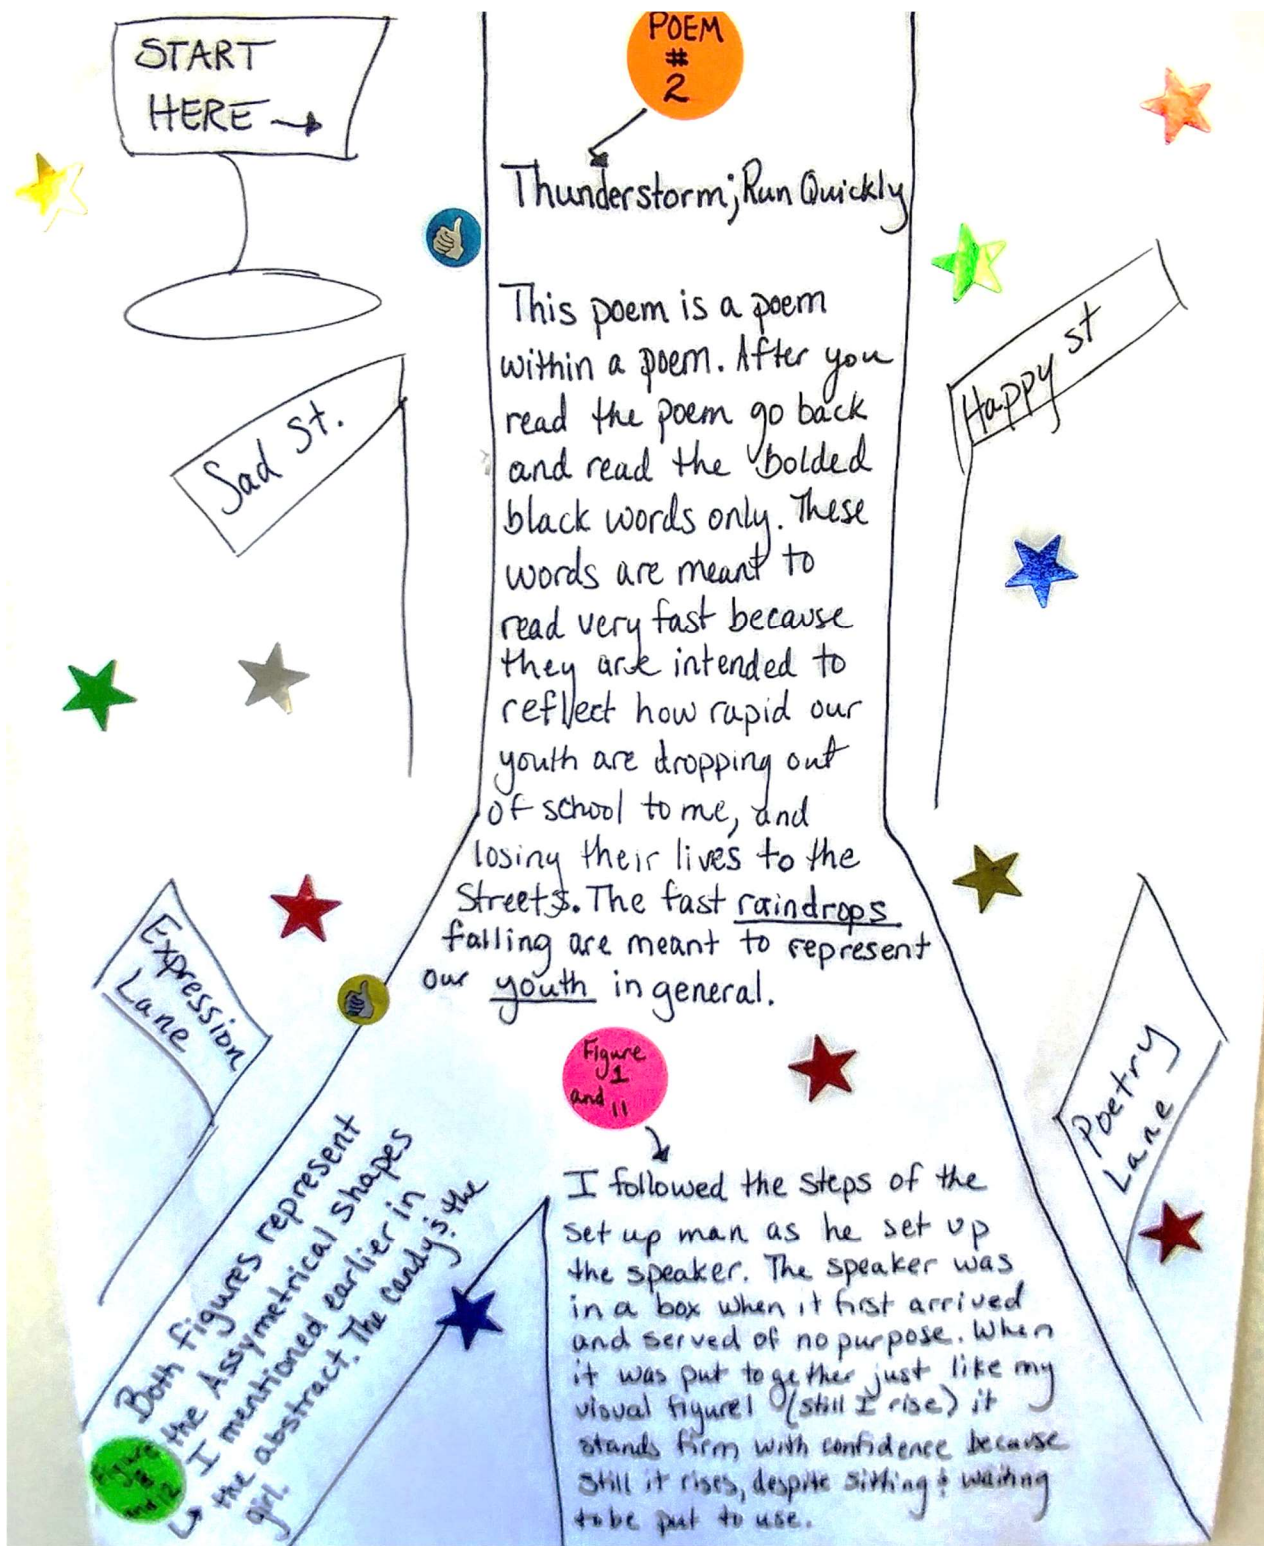 START
HERE →
POEM
#
2
Thunderstorm; Run Quickly
This poem is a poem
within a poem. After you
read the poem go back
and read the bolded
black words only. These
words are meant to
read very fast because
they are intended to
reflect how rapid our
youth are dropping out
of school to me, and
losing their lives to the
streets. The fast raindrops
falling are meant to represent
our youth in general.
Sad St.
Happy st
Expression
Lane
Poetry
Lane
Figure
1
and 11
I followed the steps of the
set up man as he set up
the speaker. The speaker was
in a box when it first arrived
and served of no purpose. When
it was put together just like my
visual figure1 (still I rise) it
stands firm with confidence because
still it rises, despite sitting & waiting
to be put to use.
Figure
and 12
Both figures represent
the Assymetrical shapes
I mentioned earlier in
the abstract. The candy is the
girl.